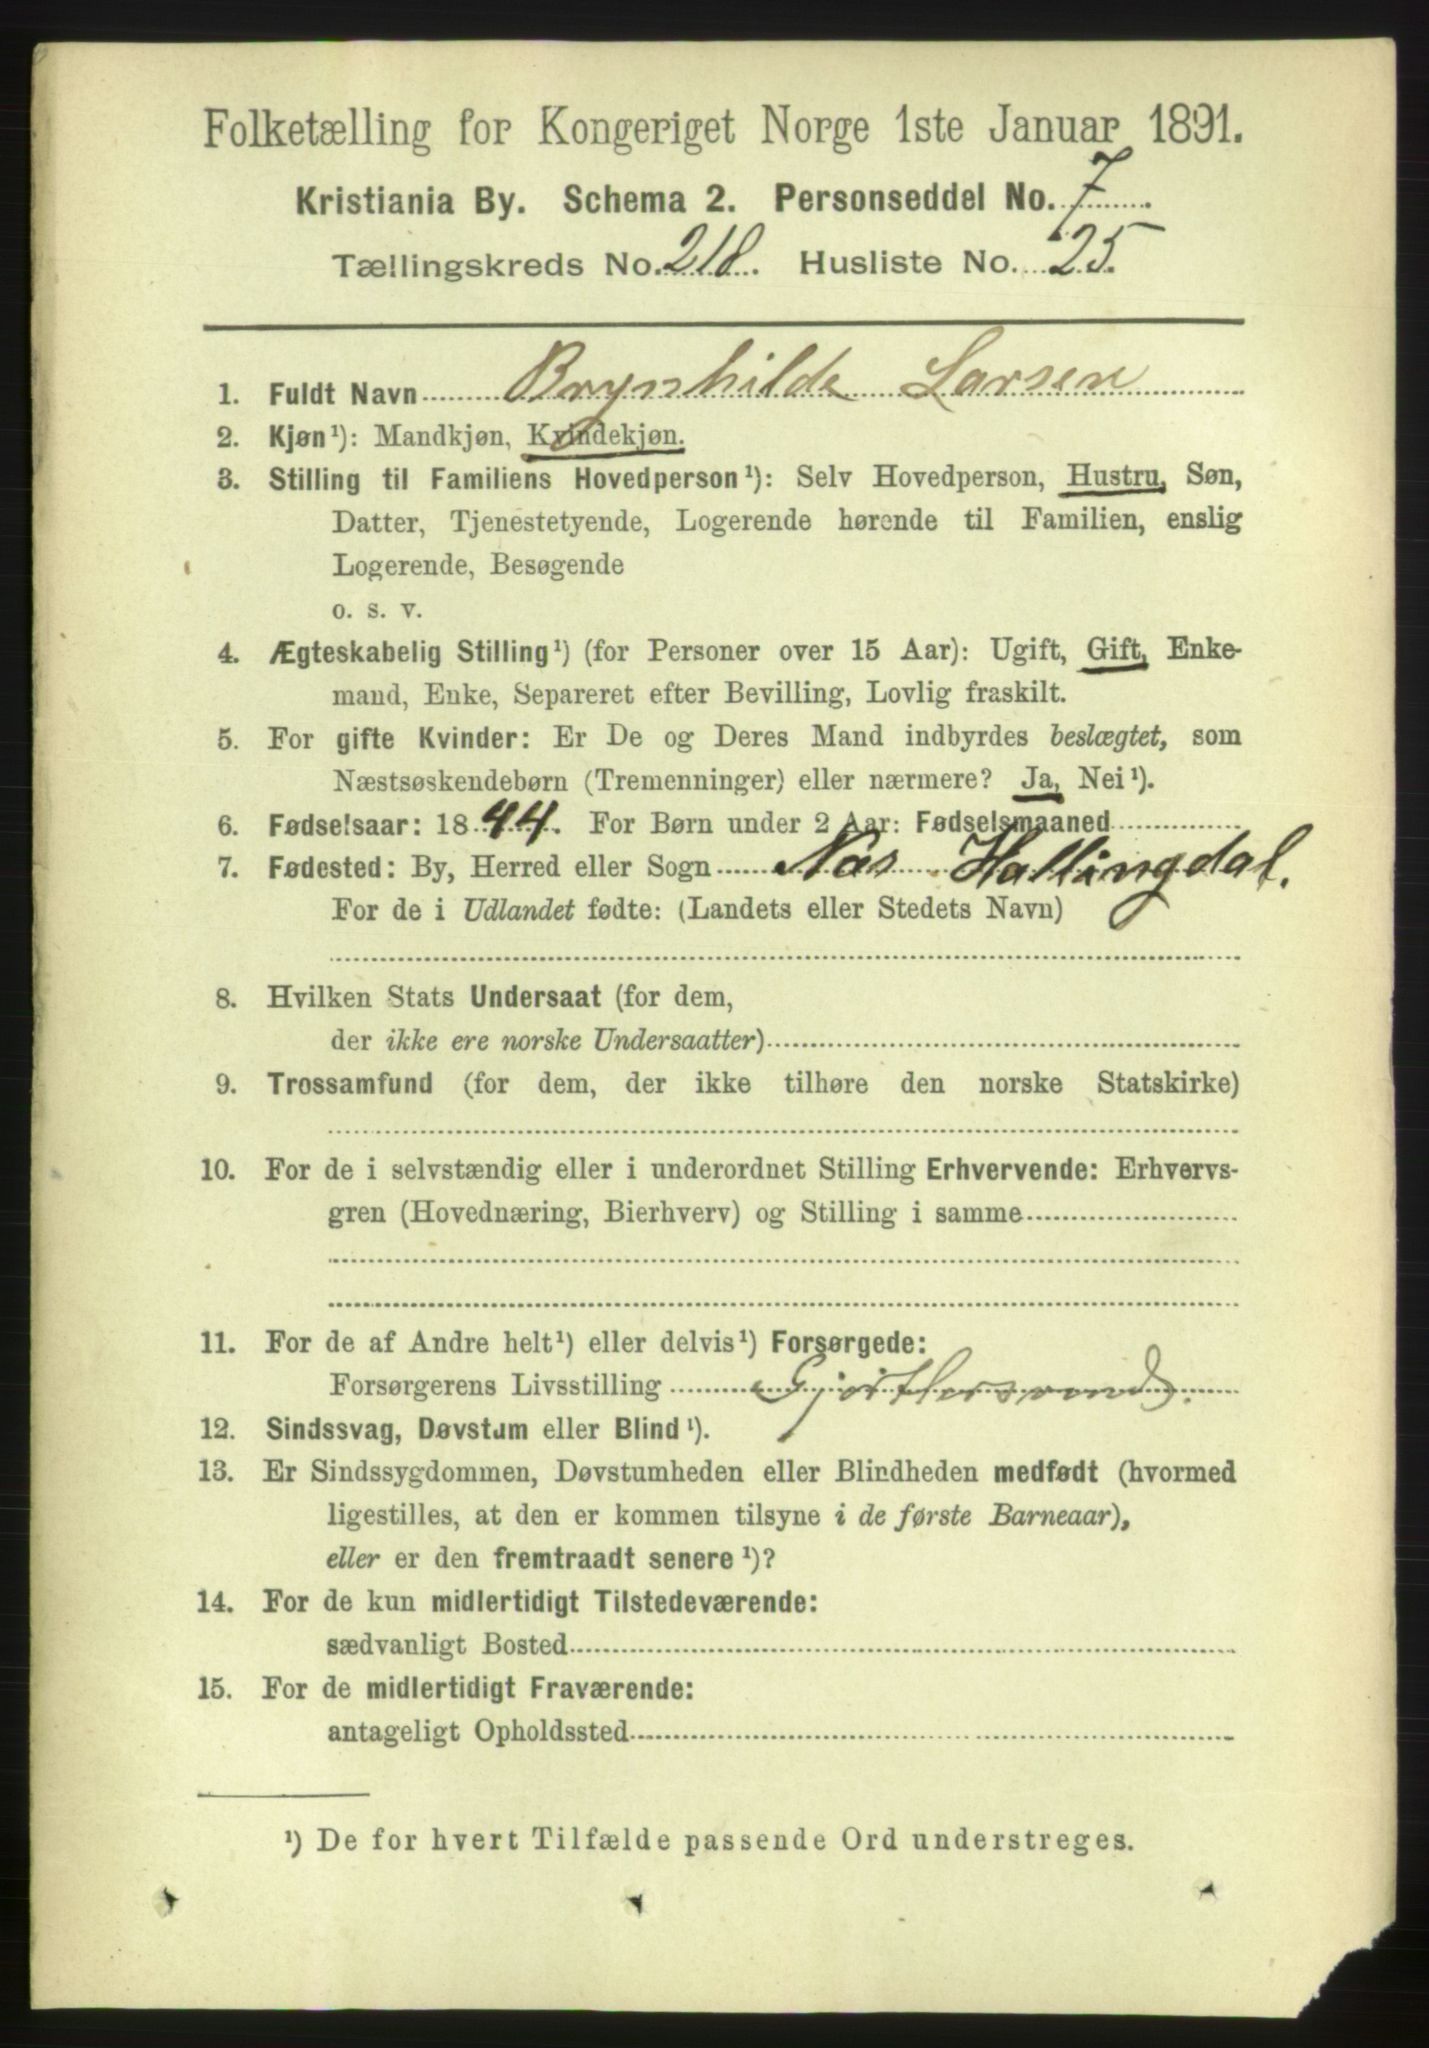 Folketælling for Kongeriget Norge 1ste Januar 1891.
Kristiania By. Schema 2. Personseddel No. 7.
Tællingskreds No. 218. Husliste No. 25.
1. Fuldt Navn Brynhilde Larsen
2. Kjøn¹): Mandkjøn, Kvindekjøn.
3. Stilling til Familiens Hovedperson¹): Selv Hovedperson, Hustru, Søn,
Datter, Tjenestetyende, Logerende hørende til Familien, enslig
Logerende, Besøgende
o. s. v.
4. Ægteskabelig Stilling¹) (for Personer over 15 Aar): Ugift, Gift, Enke-
mand, Enke, Separeret efter Bevilling, Lovlig fraskilt.
5. For gifte Kvinder: Er De og Deres Mand indbyrdes beslægtet, som
Næstsøskendebørn (Tremenninger) eller nærmere? Ja, Nei¹).
6. Fødselsaar: 1844. For Børn under 2 Aar: Fødselsmaaned
7. Fødested: By, Herred eller Sogn Nas Hallingdal.
For de i Udlandet fødte: (Landets eller Stedets Navn)
8. Hvilken Stats Undersaat (for dem,
der ikke ere norske Undersaatter)
9. Trossamfund (for dem, der ikke tilhøre den norske Statskirke)
10. For de i selvstændig eller i underordnet Stilling Erhvervende: Erhvervs-
gren (Hovednæring, Bierhverv) og Stilling i samme
11. For de af Andre helt¹) eller delvis¹) Forsørgede:
Forsørgerens Livsstilling Gjørtlersvend.
12. Sindssvag, Døvstum eller Blind¹).
13. Er Sindssygdommen, Døvstumheden eller Blindheden medfødt (hvormed
ligestilles, at den er kommen tilsyne i de første Barneaar),
eller er den fremtraadt senere¹)?
14. For de kun midlertidigt Tilstedeværende:
sædvanligt Bosted
15. For de midlertidigt Fraværende:
antageligt Opholdssted
¹) De for hvert Tilfælde passende Ord understreges.